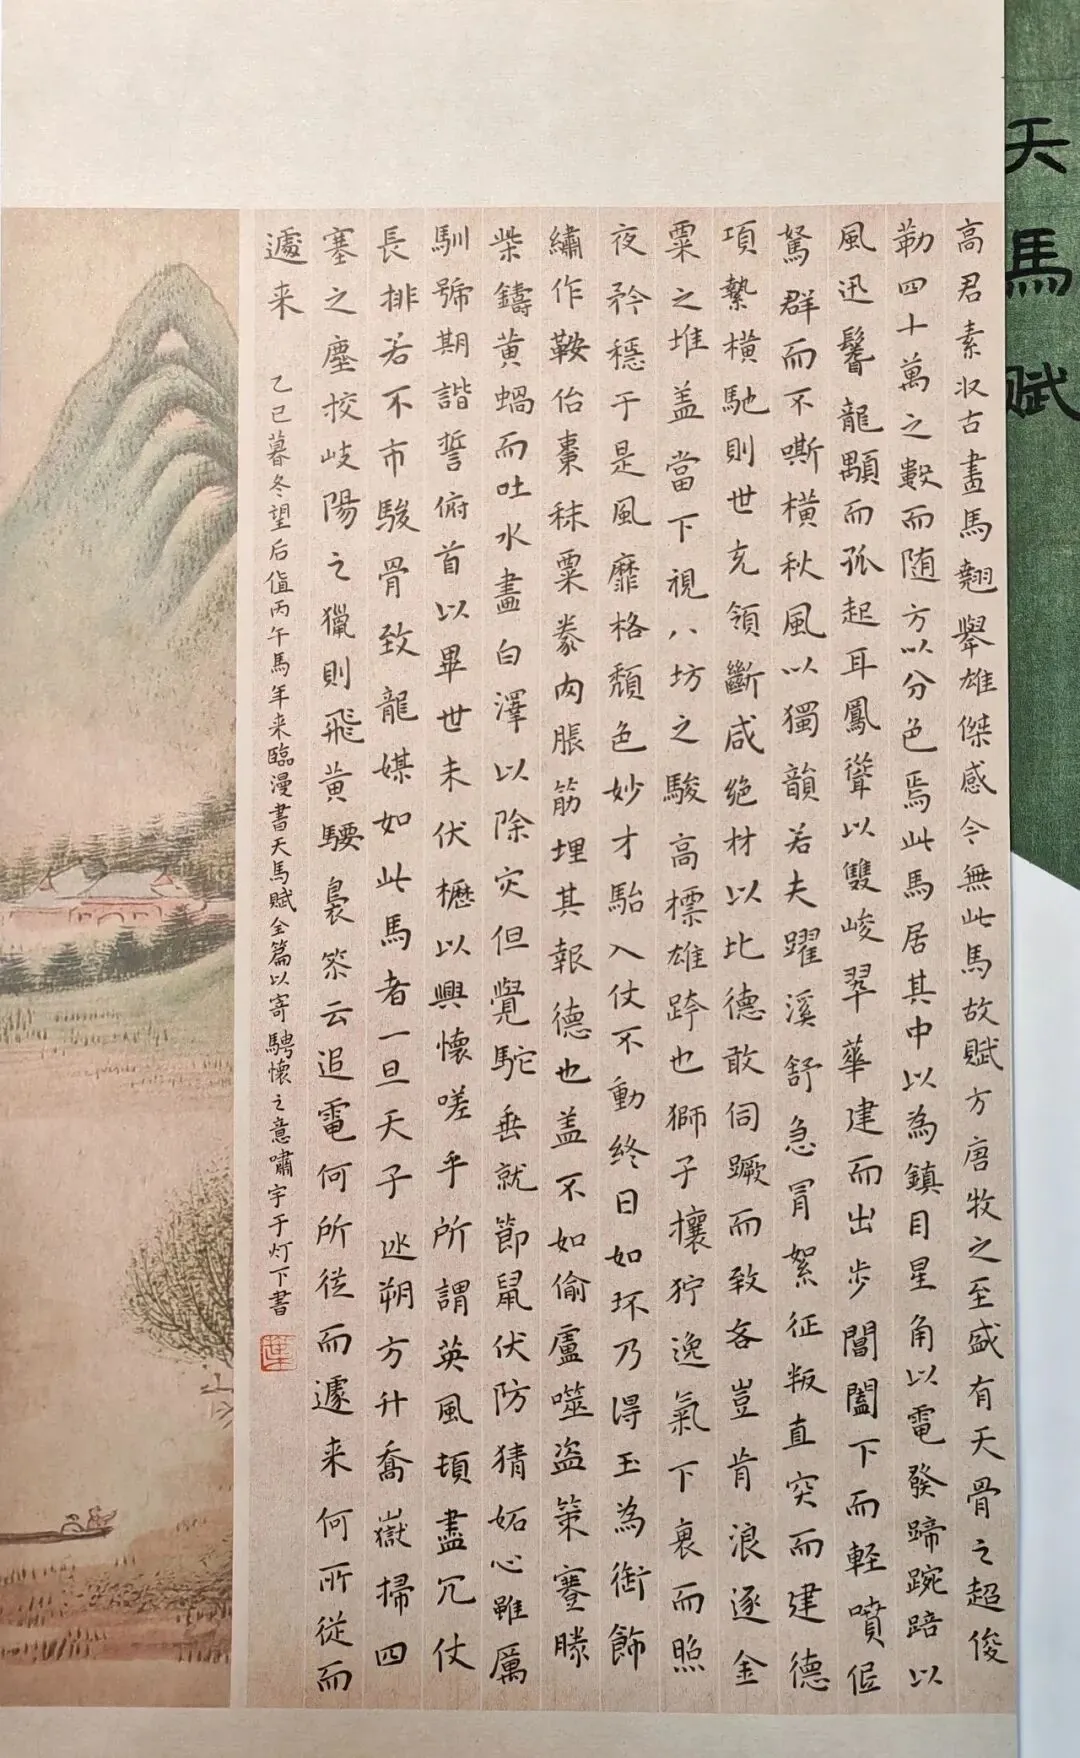 天馬賦
高君素収古畫馬翹舉雄傑感今無此馬故賦方唐牧之至盛有天骨之超俊
勒四十萬之數而随方以分色焉此馬居其中以為鎮目星角以電發蹄踠踣以
風迅鬐龍顒而孤起耳鳳聳以雙峻翠華建而出步閶闔下而軽噴低
駑群而不嘶橫秋風以獨韻若夫躍溪舒急冒絮征叛直突而建德
項縶橫馳則世充領斷咸絶材以比德敢伺蹶而致吝豈肯浪逐金
粟之堆盖當下視八坊之駿高標雄跨也獅子攘狞逸氣下衰而照
夜矜穩于是風靡格頹色妙才駘入仗不動終日如坏乃得玉為銜飾
繡作鞍佁棗秣粟豢肉脹筋埋其報德也盖不如偷盧噬盗策蹇勝
柴鑄黄蝸而吐水畫白澤以除灾但覺駝垂就節鼠伏防猜妬心雖厲
馴號期諧誓俯首以畢世未伏櫪以興懷嗟乎所謂英風頓盡冗仗
長排若不市駿骨致龍媒如此馬者一旦天子巡朔方升喬嶽掃四
塞之塵挍岐陽之獵則飛黄騕褭籋云追電何所從而遽来何所従而
遽来
乙巳暮冬望后值丙午馬年来臨漫書天馬賦全篇以寄騁懷之意嘯宇于灯下書